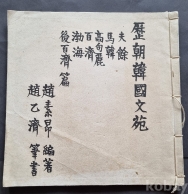 歷朝韓國文苑
夫餘
馬韓
高句麗
百濟
渤海
後百濟 篇
趙素昻 編著
趙乙濟 筆書